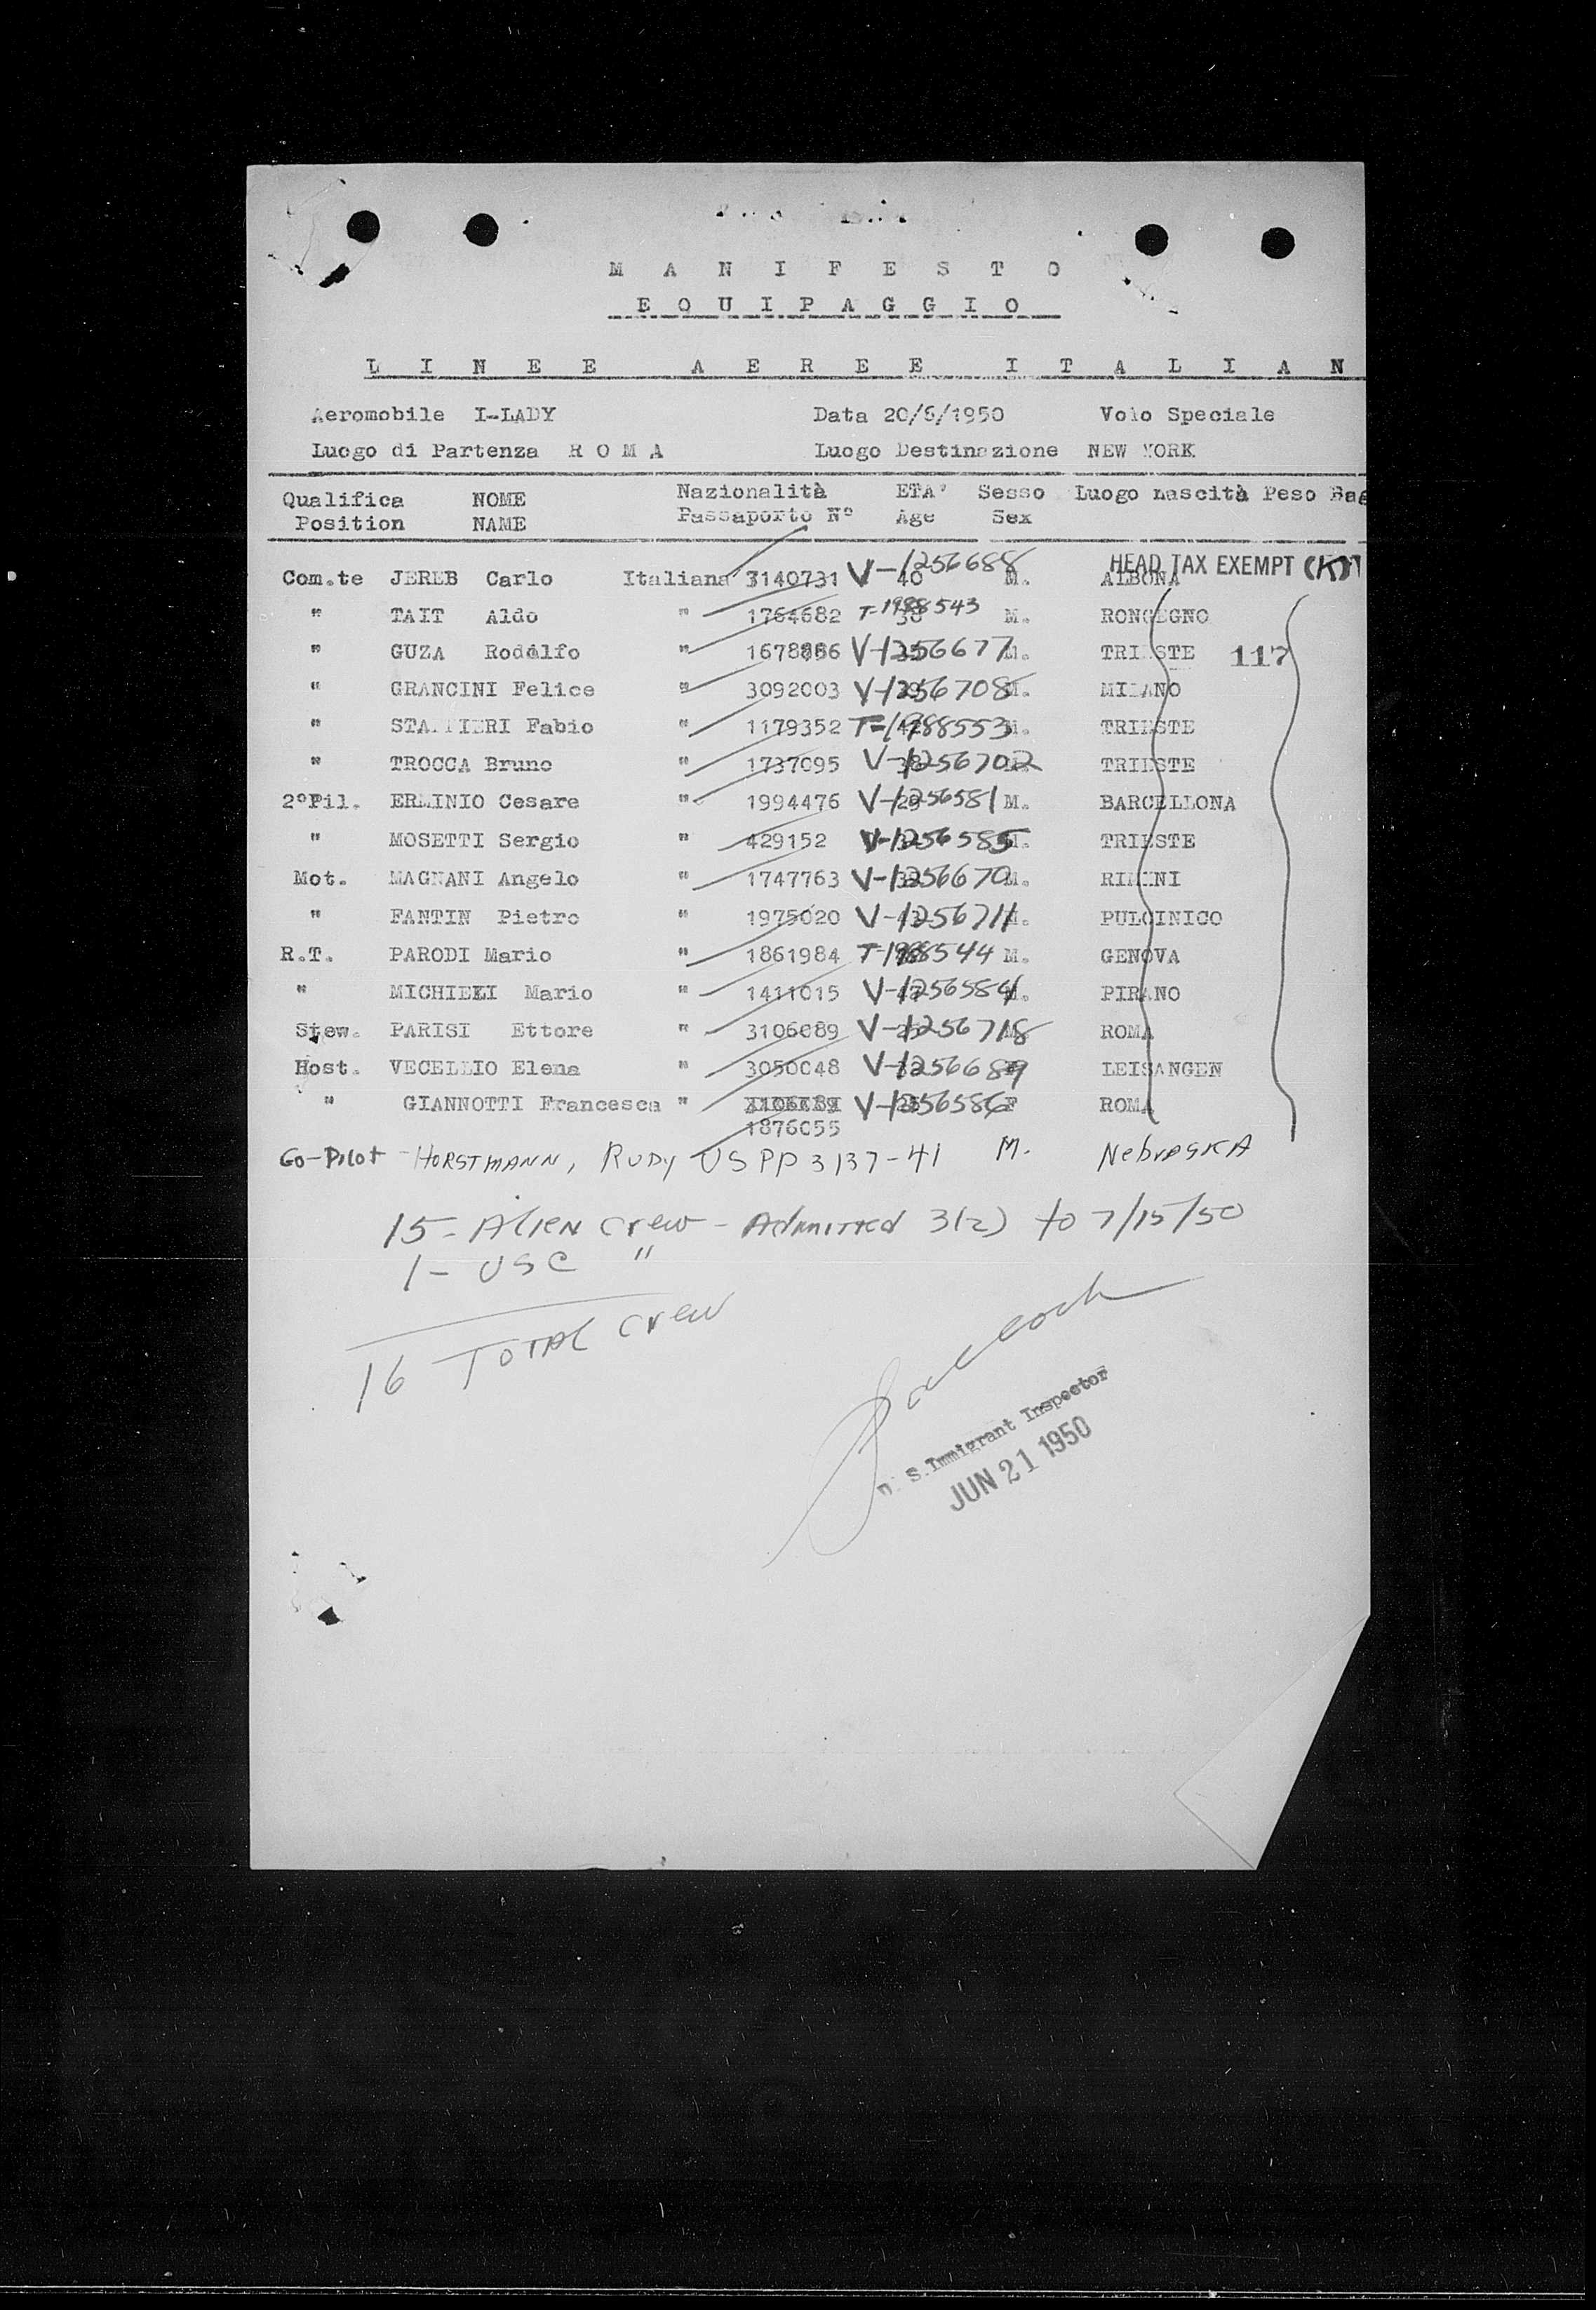 M A N I F E S T O
E Q U I P A G G I O
L I N E E A E R E E I T A L I A N
Aeromobile I-LADY Data 20/6/1950 Volo Speciale
Luogo di Partenza R O M A Luogo Destinazione NEW YORK
Qualifica NOME Nazionalità ETA' Sesso Luogo nascità Peso Bag
Position NAME Passaporto N° Age Sex
HEAD TAX EXEMPT (K)
Com.te JEREB Carlo Italiana 3140731 V-1256688 40 M. ALBONA
" TAIT Aldo " 1764682 T-1988543 M. RONCEGNO
" GUZA Rodolfo " V-1256677 M. TRIESTE 117
" GRANCINI Felice " 3092003 V-1256708 M. MILANO
" Fabio " 1179352 T-1988553 M. TRIESTE
" TROCCA Bruno " 1737095 V-1256702 TRIESTE
2°Pil. ERMINIO Cesare " 1994476 V-1256581 M. BARCELLONA
" MOSETTI Sergio " 429152 V-1256585 M. TRIESTE
Mot. MAGNANI Angelo " 1747763 V-1256670 M. RIMINI
" FANTIN Pietro " 1975020 V-1256711 M. PULCINICO
R.T. PARODI Mario " 1861984 T-1988544 M. GENOVA
" MICHIELI Mario " 1411015 V-1256584 M. PIRANO
Stew. PARISI Ettore " 3106089 V-1256718 M. ROMA
Host. VECELLIO Elena " 3050048 V-1256689 LEISANGEN
" GIANNOTTI Francesca " V-1256586 F ROMA
1876055
Co-Pilot HORSTMANN, RUDY USPP 3137-41 M. NebrASKA
15 - Alien Crew - Admitted 3(2) to 7/15/50
1 - USC "
16 TOTAL Crew
S. Immigrant Inspector
JUN 21 1950